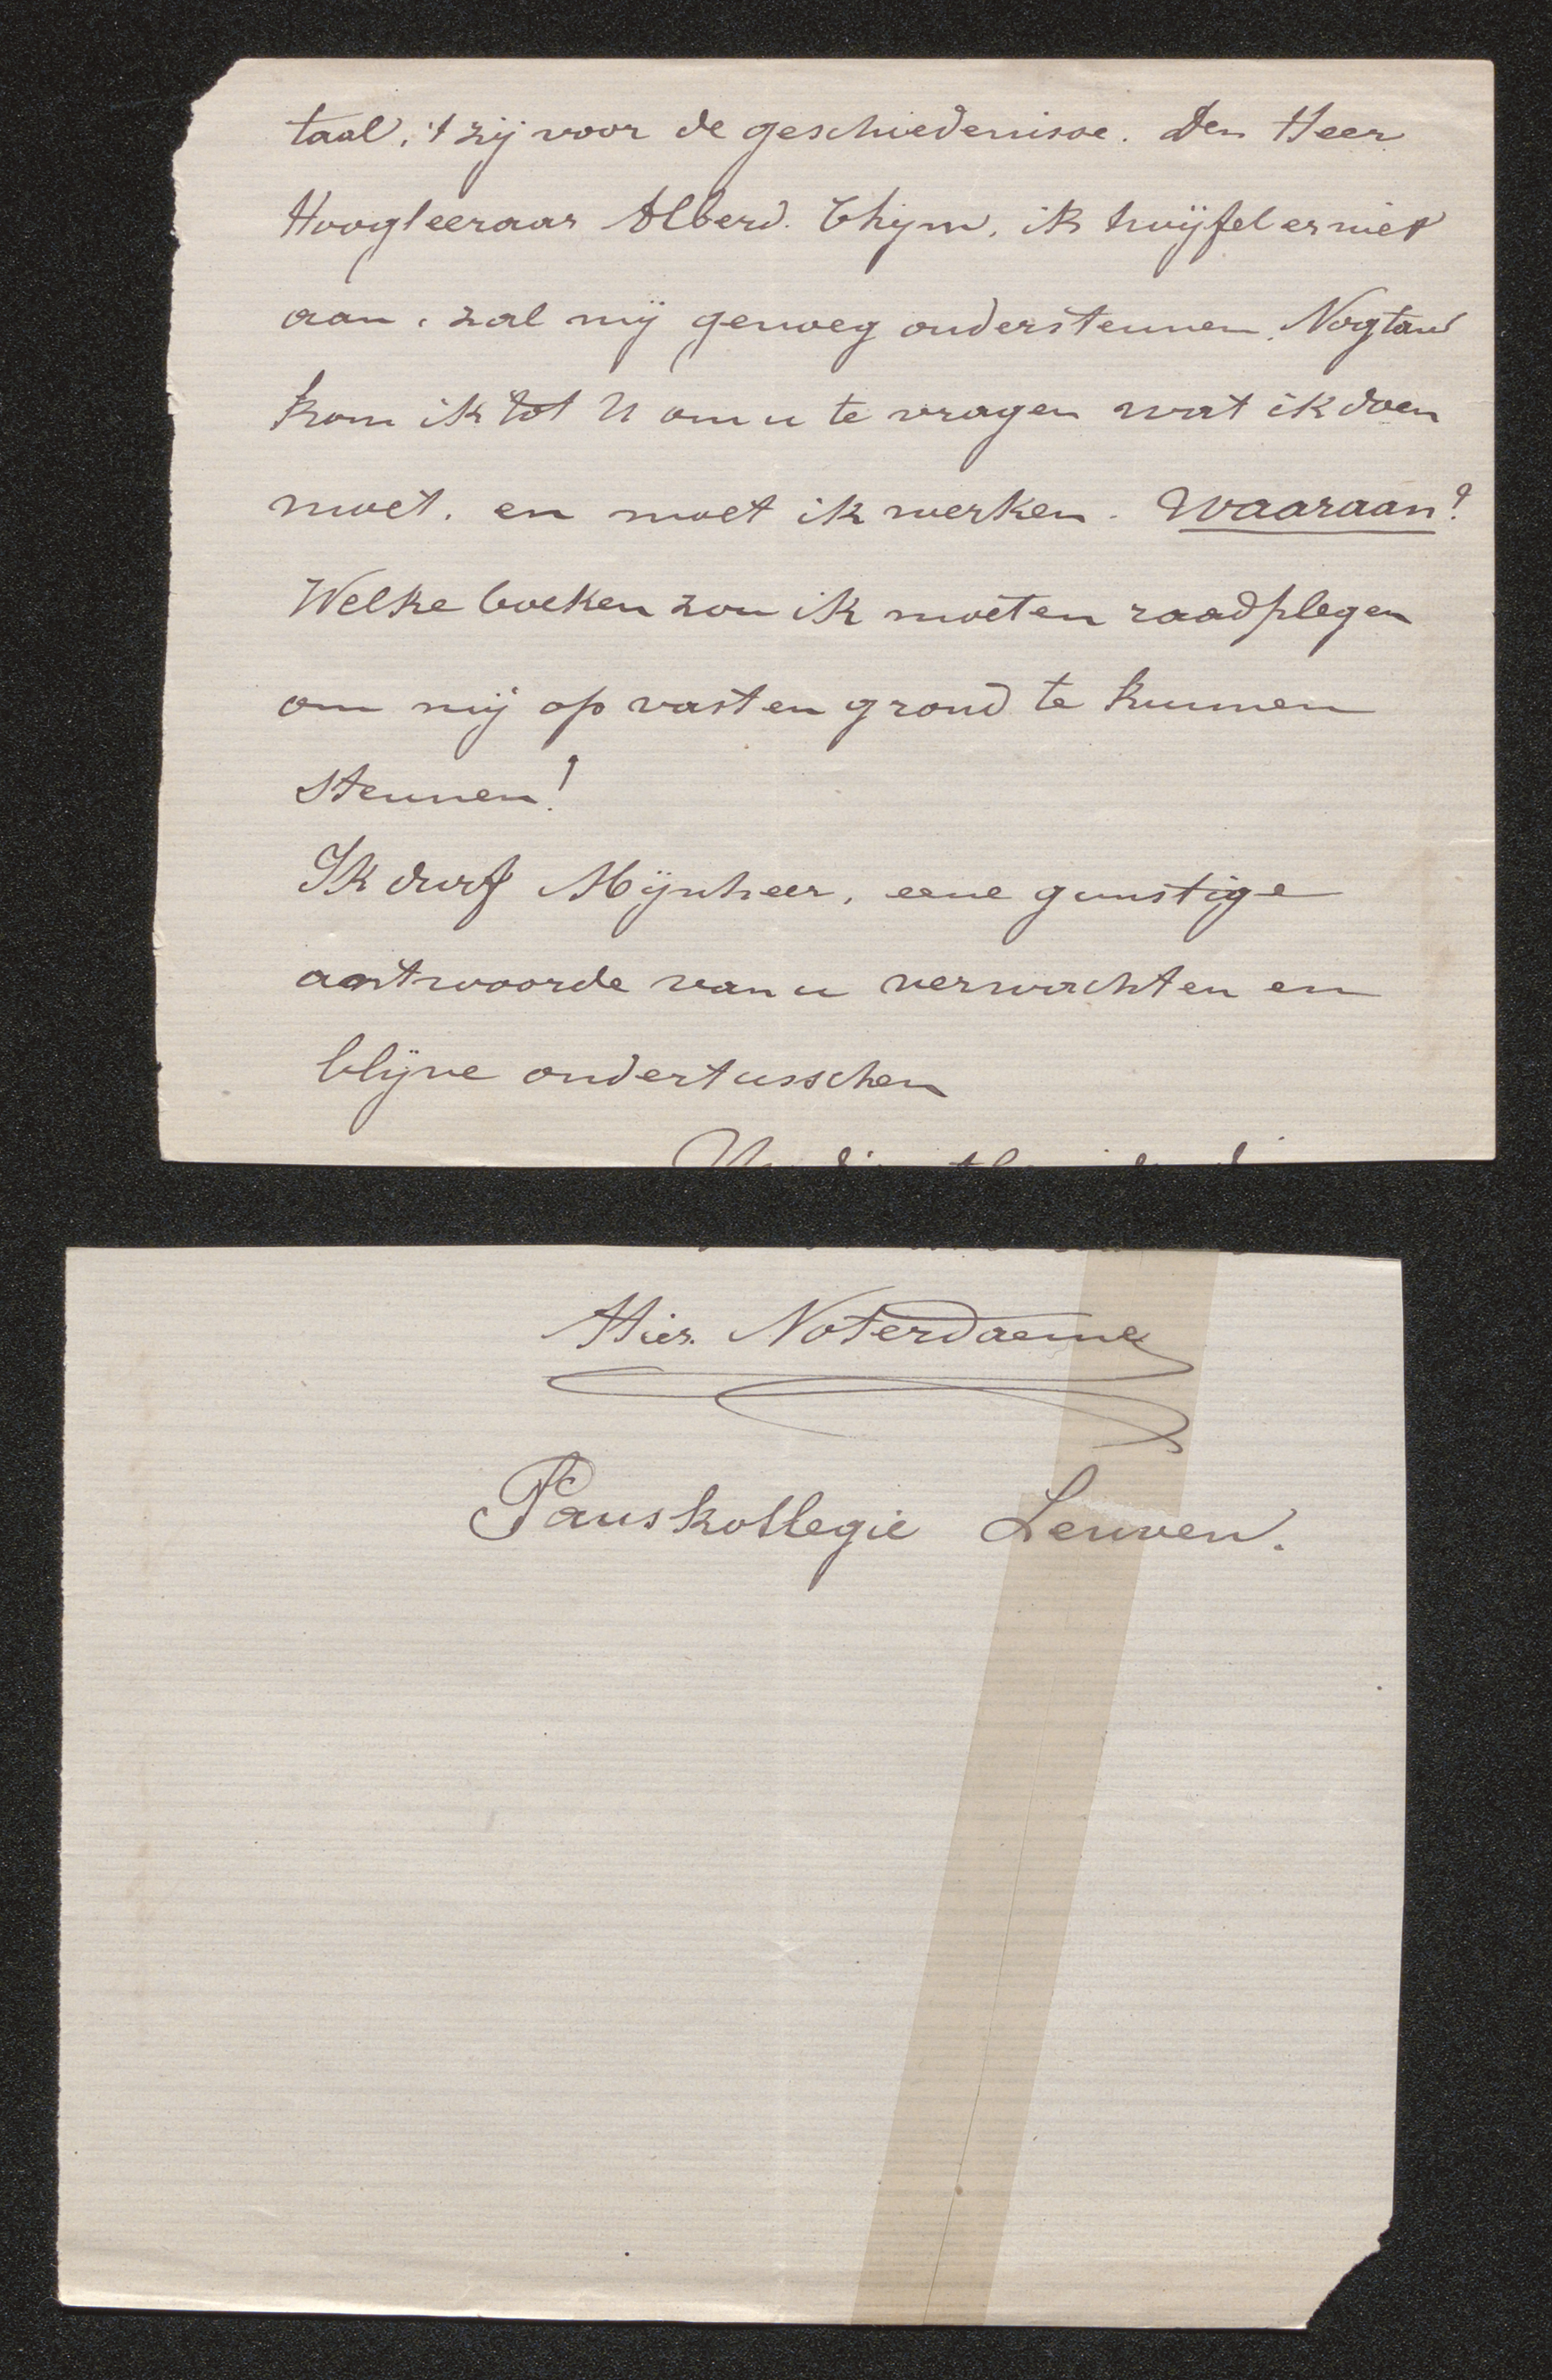 taal, 't zij voor de geschiedenisse. Den Heer
Hoogleeraar Alberd. Thijm, ik twijfel er niet
aan, zal mij genoeg ondersteunen. Nogtans
kom ik tot U om u te vragen wat ik doen
moet, en moet ik werken. Waaraan?
Welke boeken zou ik moeten raadplegen
om mij op vasten grond te kunnen
steunen!
Ik durf Mijnheer, eene gunstige
antwoorde van u verwachten en
blijve ondertusschen
Hier. Noterdaeme
Pauskollegie Leuven.